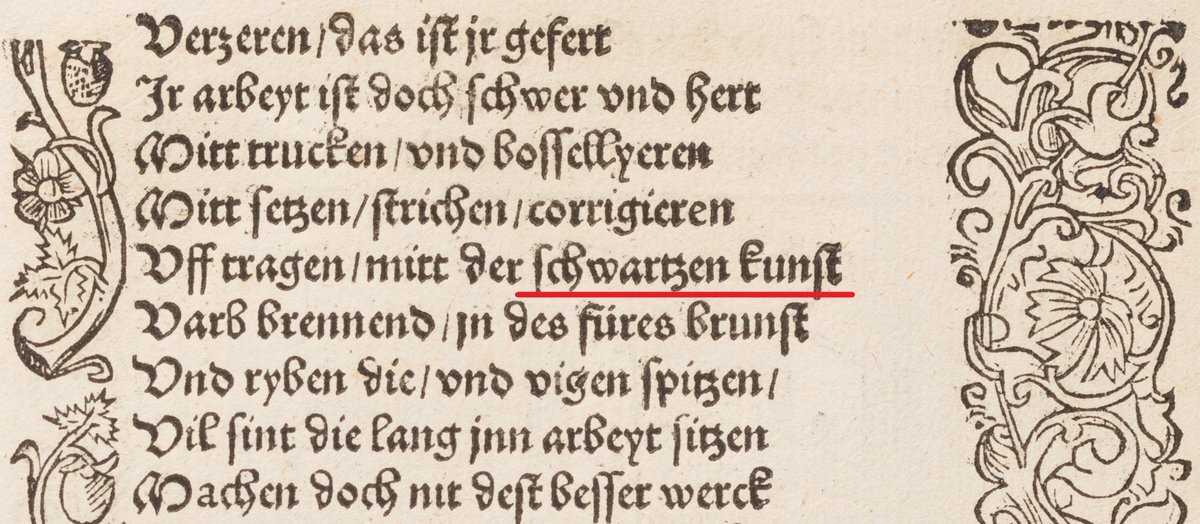 Verzeren/das ist jr gefert
Jr arbeyt ist doch schwer vnd hert
Mitt trucken/vnd bossellyeren
Mitt setzen/strichen/corrigieren
Vff tragen/mitt der schwartzen kunst
Varb brennend/jn des füres brunst
Vnd ryben die/vnd vigen spitzen/
Vil sint die lang jnn arbeyt sitzen
Machen doch nit dest besser werck